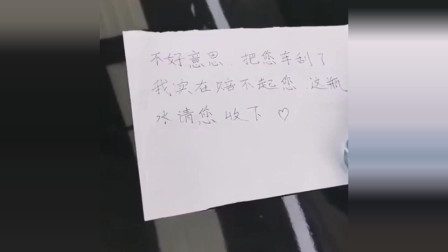 不好意思 把您车刮了
我实在赔不起您 这瓶
水请您收下♡